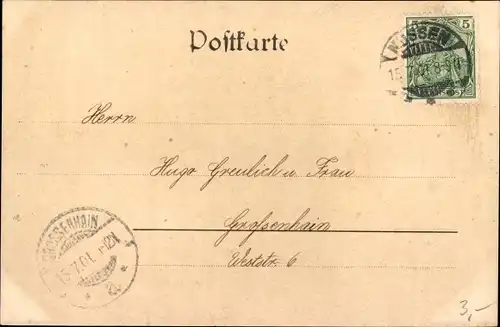 Postkarte
5 5
MEISSEN
15.7.01. 8-9V.
Herrn
Hugo Greulich u. Frau
Großenhain
Weststr. 6
GROSSENHAIN
15.7.01. 11-12V.
3,-